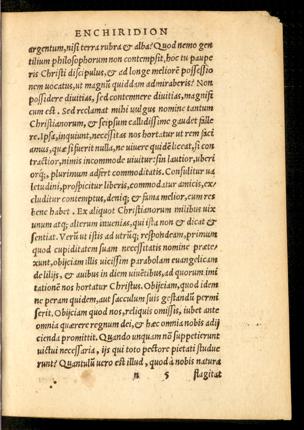 ENCHIRIDION
argentum, nisi terra rubra & alba? Quod nemo gen
tilium philosophorum non contempsit, hoc tu paupe
ris Christi discipulus, & ad longe meliorē possessio
nem uocatus, ut magnū quiddam admiraberis? Non
possidere diuitias, sed contemnere diuitias, magnifi
cum est. Sed reclamat mihi uulgus nomine tantum
Christianorum, & seipsum callidissime gaudet falle
re. Ipsa, inquiunt, necessitas nos hortatur ut rem faci
amus, quæ si fuerit nulla, ne uiuere quidē liceat, si con
tractior, nimis incommode uiuitur: sin lautior, uberi
orq́;, plurimum adfert commoditatis. Consulitur ua
letudini, prospicitur liberis, commodatur amicis, ex
cluditur contemptus, deniq; & fama melior, cum res
bene habet. Ex aliquot Christianorum milibus uix
unum atq; alterum inuenias, qui ista non & dicat &
sentiat. Verū ut istis ad utrūq; respondeam, primum
quod cupiditatem suam necessitatis nomine prætex
xunt, obijciam illis uicissim parabolam euangelicam
de lilijs, & auibus in diem uiuētibus, ad quorum imi
tationē nos hortatur Christus. Obijciam, quod idem
ne peram quidem, aut sacculum suis gestandū permi
serit. Obijciam quod nos, reliquis omissis, iubet ante
omnia quærere regnum dei, & hæc omnia nobis adij
cienda promittit. Quando unquam nō suppetierunt
uictui necessaria, ijs qui toto pectore pietati studue
runt? Quantulū uero est illud, quod à nobis natura
n 5 flagitat